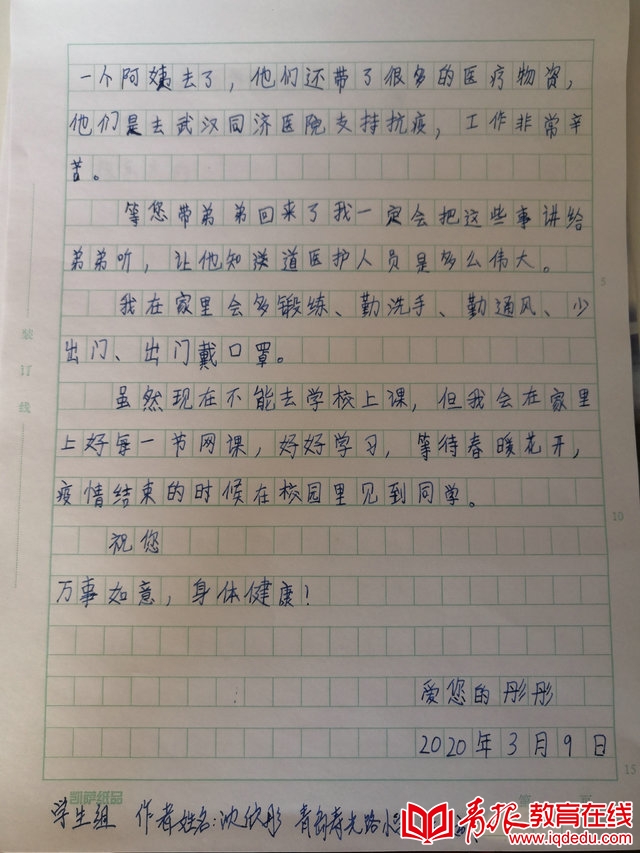 一个阿姨去了，他们还带了很多的医疗物资，
他们是去武汉同济医院支持抗疫，工作非常辛
苦。
等您带弟弟回来了我一定会把这些事讲给
弟弟听，让他知道医护人员是多么伟大。
5
我在家里会多锻练、勤洗手、勤通风、少
出门、出门戴口罩。
装订线
虽然现在不能去学校上课，但我会在家里
上好每一节网课，好好学习，等待春暖花开，
疫情结束的时候在校园里见到同学。
10
祝您
万事如意，身体健康！
爱您的彤彤
2020年3月9日
15
凯萨纸品
学生组 作者姓名：沈欣彤 青岛寿光路小
青报教育在线
www.iqdedu.com